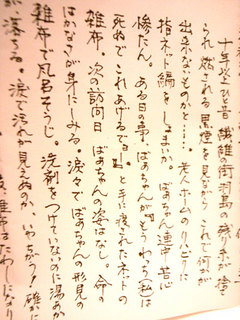 十年以上ひと昔 繊維の街羽島の残り糸が捨て
られ燃される黒煙を見ながらこれで何かが
出来ないものかと…。老人ホームのリハビリに
指ネット編をしまいか ばあちゃん連中 苦心
惨たん。ある日の事、ばあちゃんが「もうわっち(私)は
死ぬでこれあげるでな」と手に渡されたネットの
雑布。次の訪問日 ばあちゃんの姿はなし。命の
はかなさが身にしみる。涙々でばあちゃんの形見の
雑布で風呂そうじ。洗剤をつけていないのに湯あか
が落ちる。涙で汚れが見えぬのか、いやちがう！確かに
雑布はたわしになり